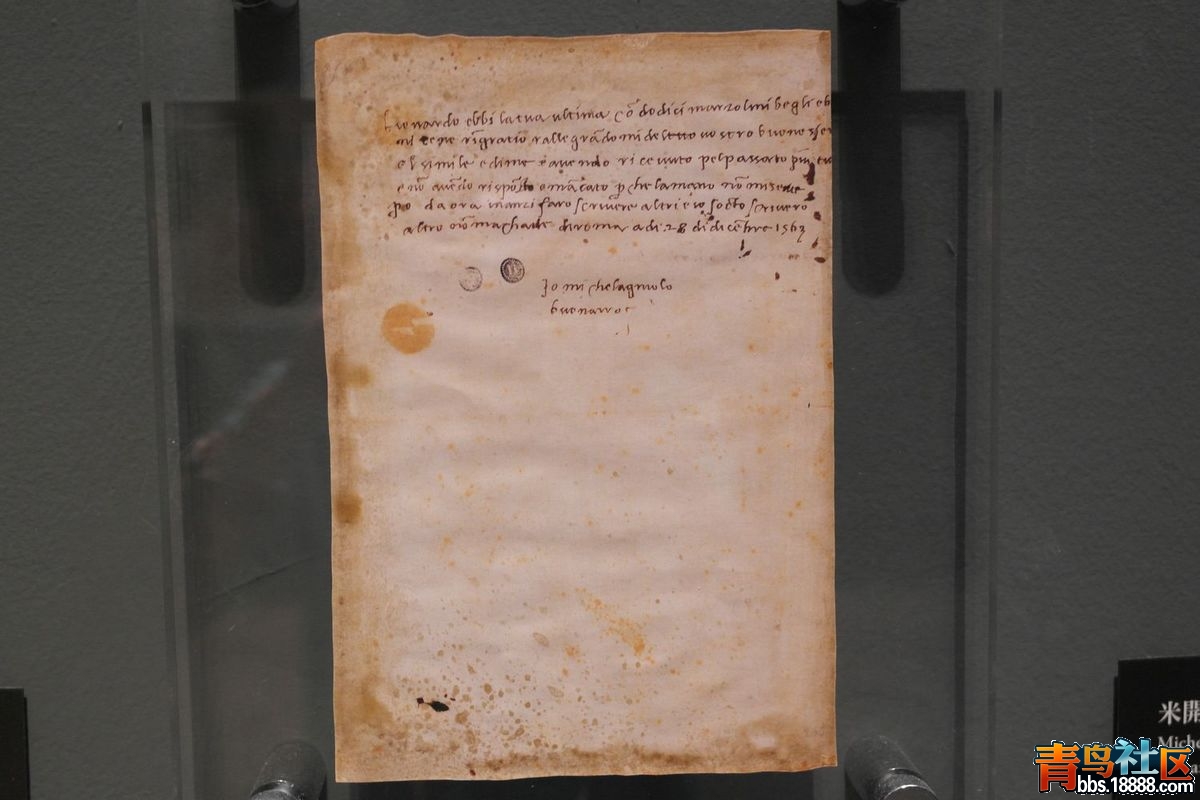 Lionardo ebbi la tua ultima cō dodici marzolini begli e b
ne rīgratio rallegrādomi del tuto vostro buone sser
el simile e di me e avendo ricevuto pel passato
e nō avēdo rispōsto e mācato p che la mano nō mi serve
po da ora inanzi faro scrivere altri e io socto scrivero
altro nō machade di roma a di 28 di dicēbre 1563
Io michelagniolo
buonarroti
米開
Miche
青鸟社区
bbs.18888.com